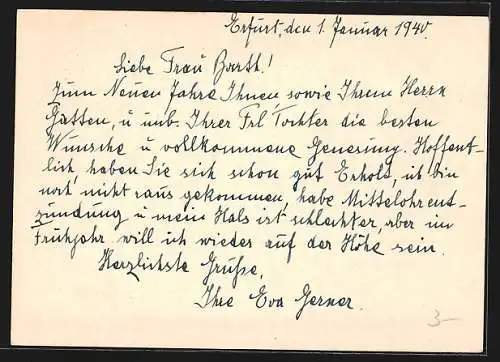 Erfurt, den 1. Januar 1940.
Liebe Frau Barth!
Zum Neuen Jahre Ihnen, sowie Ihrem Herrn
Gatten, u unb. Ihrer Frl. Tochter die besten
Wünsche u vollkommene Genesung. Hoffent-
lich haben Sie sich schon gut Erholt, ich bin
noch nicht raus gekommen, habe Mittelohrent-
zündung u mein Hals ist schlechter, aber im
Frühjahr will ich wieder auf der Höhe sein.
Herzlichste Grüße,
Ihre Eva Gerner.
3-